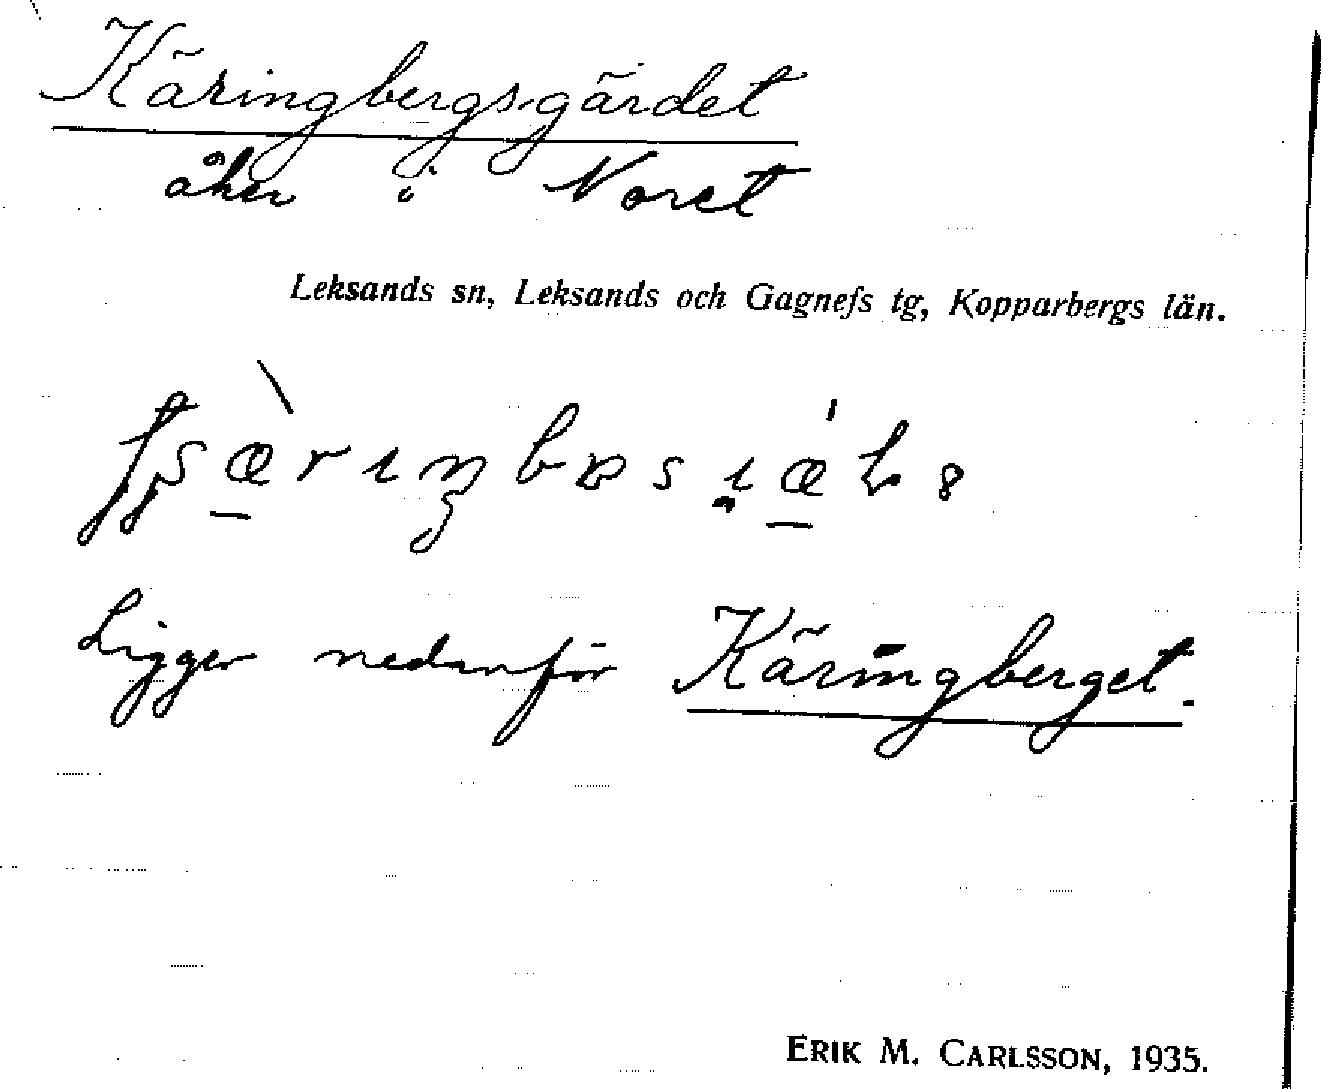 Käringbergsgärdet
åker i Noret
Leksands sn, Leksands och Gagnefs tg, Kopparbergs län.
Ligger nedanför Käringberget.
ERIK M. CARLSSON, 1935.